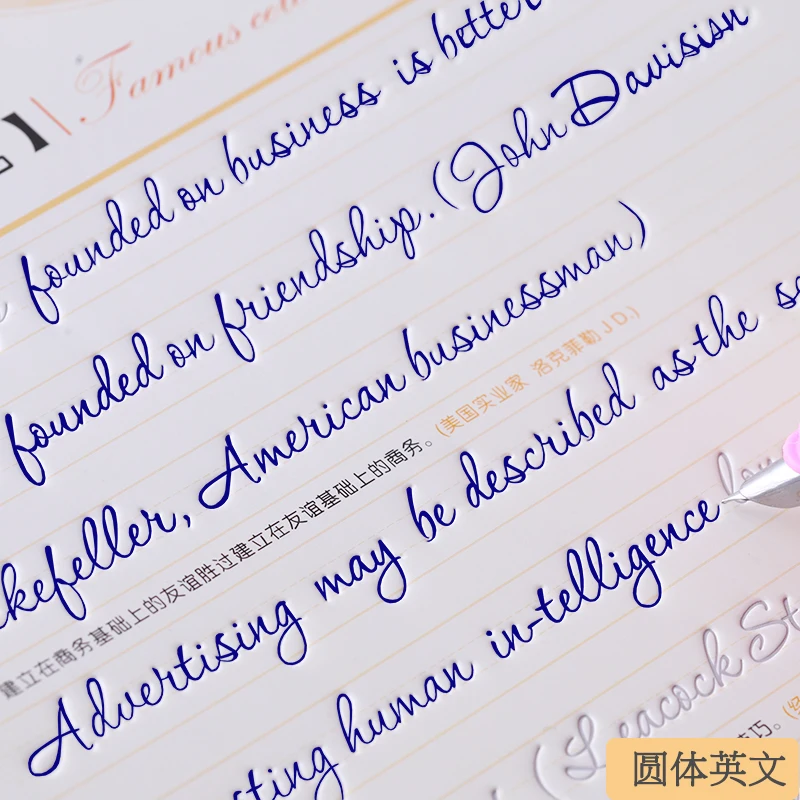 】 Famous
founded on business is better
founded on friendship. (John Davisisn
kefeller, American businessman)
建立在商务基础上的友谊胜过建立在友谊基础上的商务。(美国实业家 洛克菲勒J D.)
Advertising may be described as the sc
sting human in-telligence
(Leacock St
圆体英文